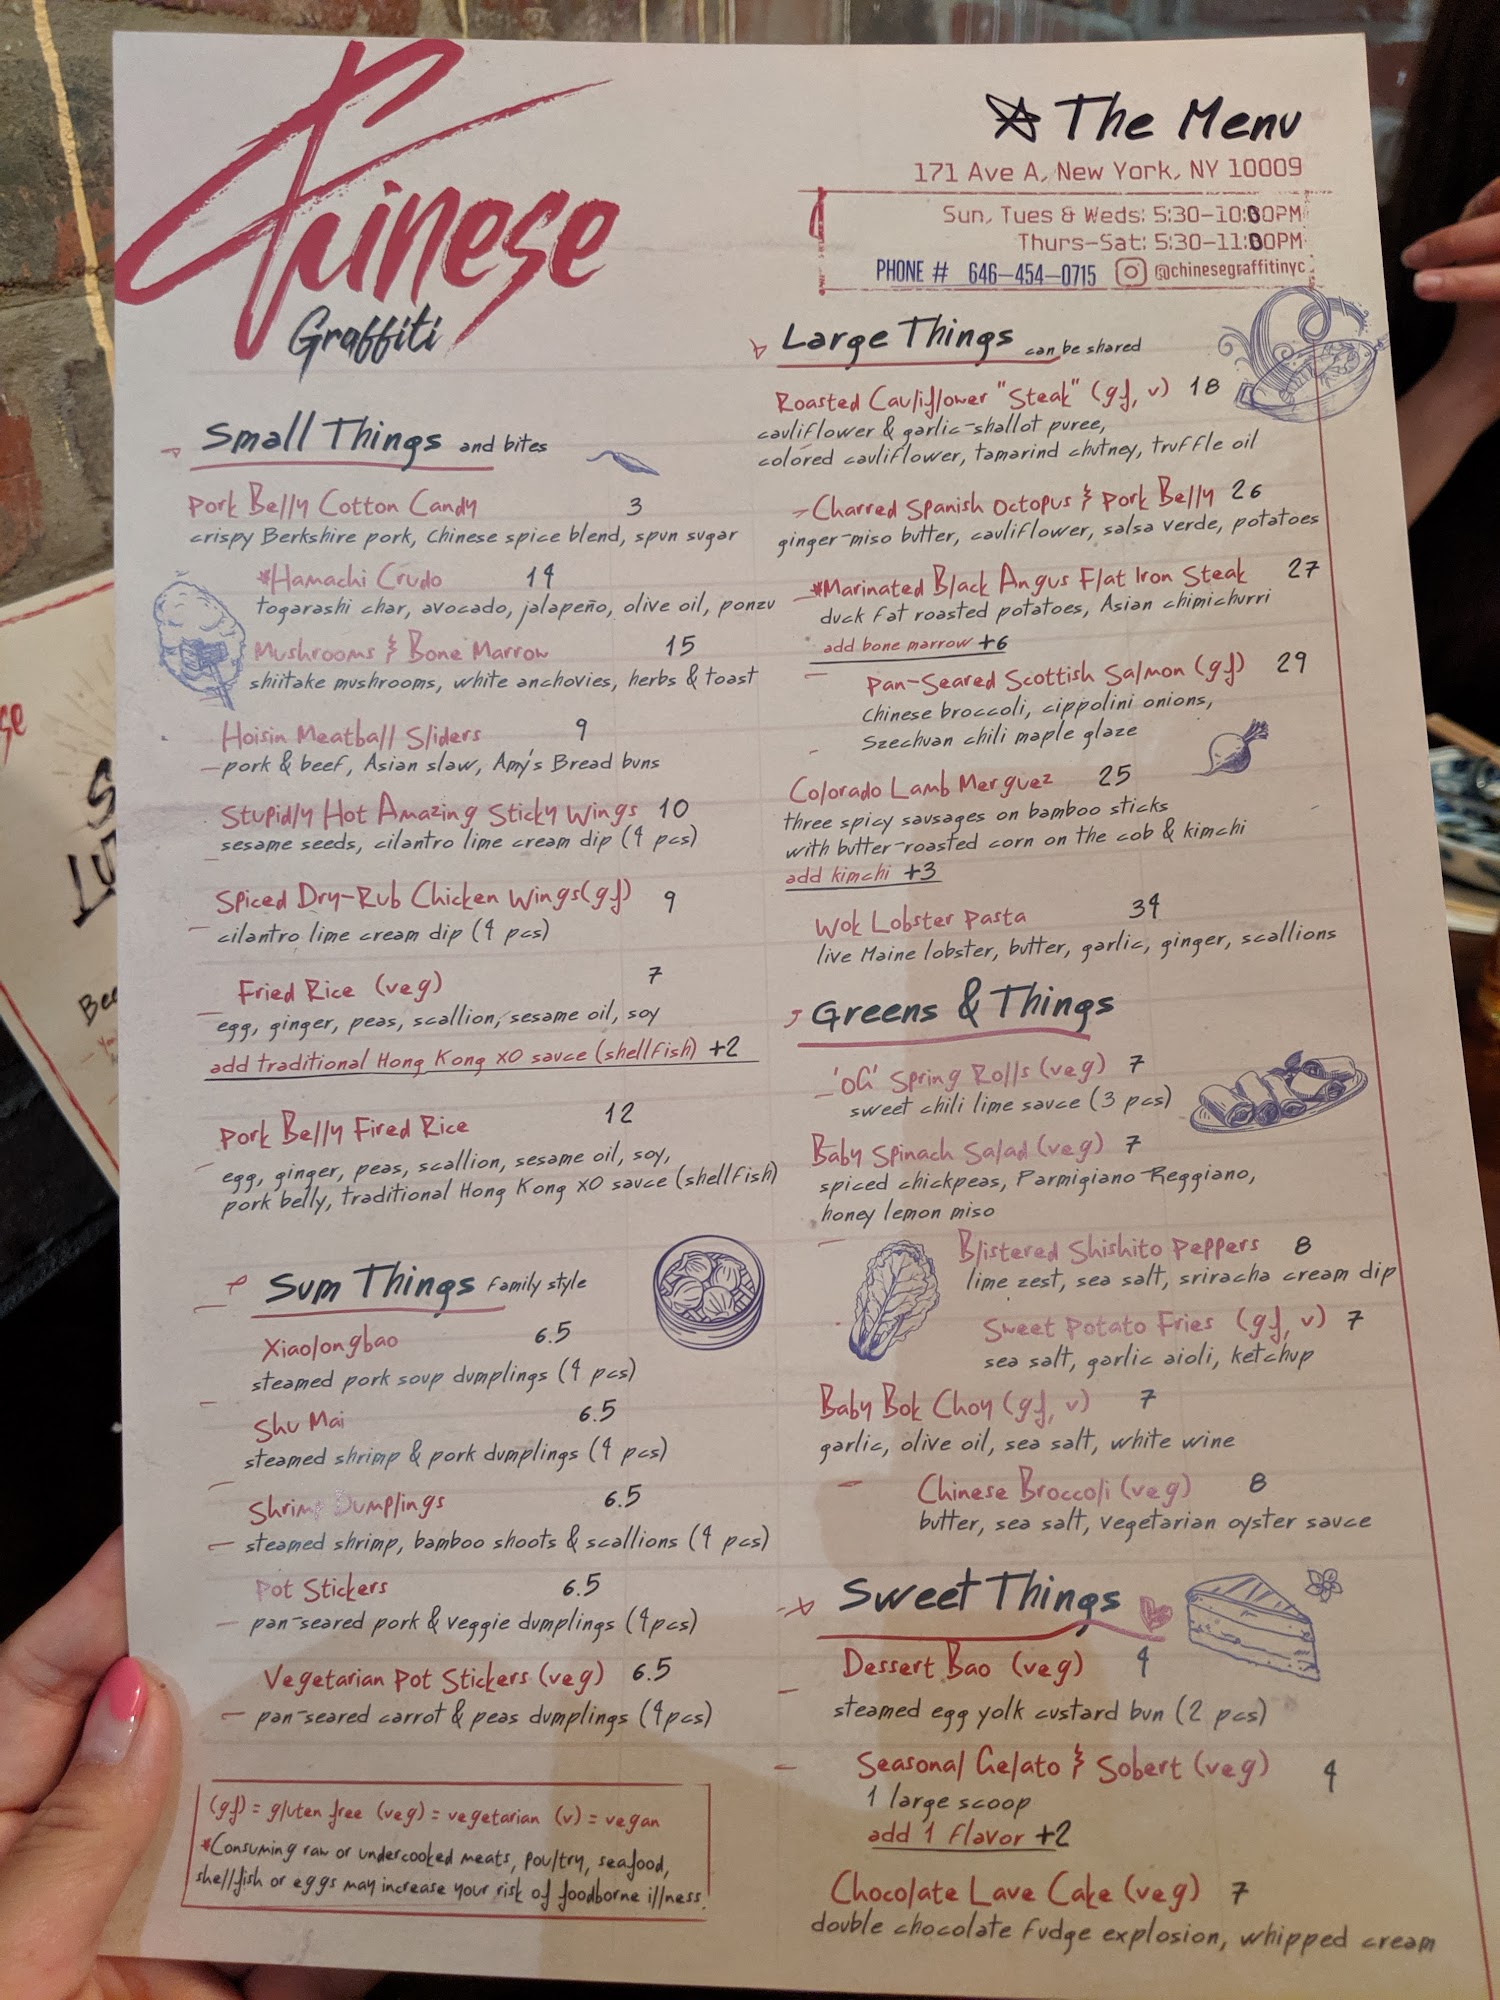 Chinese
Graffiti
The Menu
171 Ave A, New York, NY 10009
Sun, Tues & Weds: 5:30-10:00PM
Thurs-Sat: 5:30-11:00PM
PHONE # 646-454-0715 @chinesegraffitinyc
Small Things and bites
Pork Belly Cotton Candy 3
crispy Berkshire pork, Chinese spice blend, spun sugar
*Hamachi Crudo 14
togarashi char, avocado, jalapeño, olive oil, ponzu
Mushrooms & Bone Marrow 15
shiitake mushrooms, white anchovies, herbs & toast
Hoisin Meatball Sliders 9
pork & beef, Asian slaw, Amy's Bread buns
Stupidly Hot Amazing Sticky Wings 10
sesame seeds, cilantro lime cream dip (4 pcs)
Spiced Dry-Rub Chicken Wings(gf) 9
cilantro lime cream dip (4 pcs)
Fried Rice (veg) 7
egg, ginger, peas, scallion, sesame oil, soy
add traditional Hong Kong XO sauce (shellfish) +2
Pork Belly Fired Rice 12
egg, ginger, peas, scallion, sesame oil, soy,
pork belly, traditional Hong Kong XO sauce (shellfish)
Sum Things Family style
Xiaolongbao 6.5
steamed pork soup dumplings (4 pcs)
Shu Mai 6.5
steamed shrimp & pork dumplings (4 pcs)
Shrimp Dumplings 6.5
steamed shrimp, bamboo shoots & scallions (4 pcs)
Pot Stickers 6.5
pan-seared pork & veggie dumplings (4pcs)
Vegetarian Pot Stickers (veg) 6.5
pan-seared carrot & peas dumplings (4pcs)
(gf) = gluten free (veg) = vegetarian (v) = vegan
*Consuming raw or undercooked meats, poultry, seafood,
shellfish or eggs may increase your risk of foodborne illness.
Large Things can be shared
Roasted Cauliflower "Steak" (gf, v) 18
cauliflower & garlic-shallot puree,
colored cauliflower, tamarind chutney, truffle oil
Charred Spanish Octopus & Pork Belly 26
ginger-miso butter, cauliflower, salsa verde, potatoes
*Marinated Black Angus Flat Iron Steak 27
duck fat roasted potatoes, Asian chimichurri
add bone marrow +6
Pan-Seared Scottish Salmon (gf) 29
Chinese broccoli, cippolini onions,
Szechuan chili maple glaze
Colorado Lamb Merguez 25
three spicy sausages on bamboo sticks
with butter-roasted corn on the cob & kimchi
add kimchi +3
Wok Lobster Pasta 34
live Maine lobster, butter, garlic, ginger, scallions
Greens & Things
'OG' Spring Rolls (veg) 7
sweet chili lime sauce (3 pcs)
Baby Spinach Salad (veg) 7
spiced chickpeas, Parmigiano-Reggiano,
honey lemon miso
Blistered Shishito Peppers 8
lime zest, sea salt, sriracha cream dip
Sweet Potato Fries (gf, v) 7
sea salt, garlic aioli, ketchup
Baby Bok Choy (gf, v) 7
garlic, olive oil, sea salt, white wine
Chinese Broccoli (veg) 8
butter, sea salt, vegetarian oyster sauce
Sweet Things
Dessert Bao (veg) 4
steamed egg yolk custard bun (2 pcs)
Seasonal Gelato & Sobert (veg) 4
1 large scoop
add 1 flavor +2
Chocolate Lave Cake (veg) 7
double chocolate fudge explosion, whipped cream